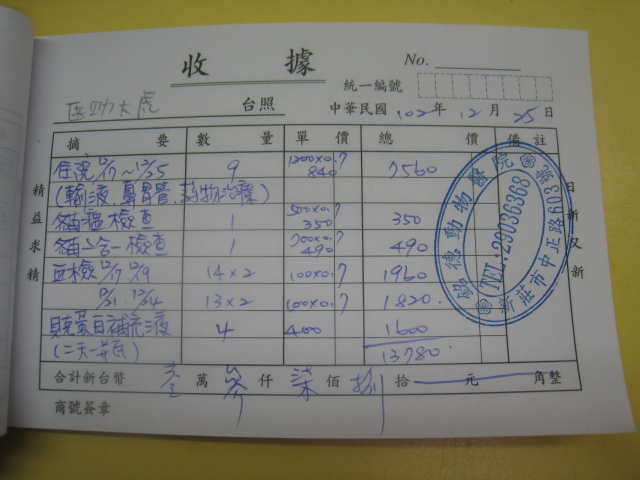 收 據
No.
統一編號
台照
中華民國 102 年 12 月 25 日
摘 要 數 量 單 價 總 價 備 註
住院 12/17~12/25 9 1200×0.7 840 7560
(輸液、鼻胃管、藥物治療)
貓瘟檢查 1 500×0.7 350 350
貓二合一檢查 1 700×0.7 490 490
血檢 12/17 12/19 14×2 100×0.7 1960
12/21 . 12/24 13×2 100×0.7 1820
蛋白補充液 4 400 1600
(二天一瓶) 13780.
合計新台幣 壹 萬 參 仟 柒 佰 捌 拾 元 角整
商號簽章
精益求精
日新又新
德動物醫院
TEL:29036368
新莊市中正路603號